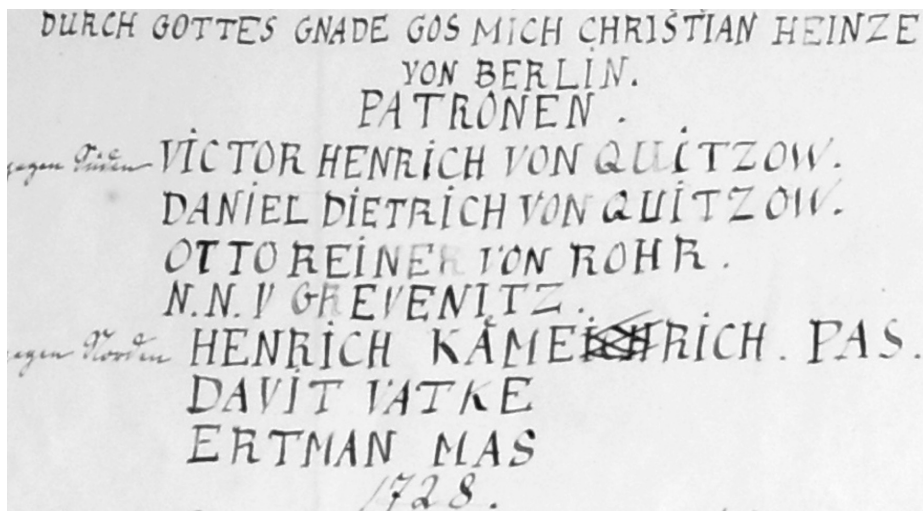 DURCH GOTTES GNADE GOS MICH CHRISTIAN HEINZE
VON BERLIN.
PATRONEN.
gegen Süden VICTOR HENRICH VON QUITZOW.
DANIEL DIETRICH VON QUITZOW.
OTTO REINER VON ROHR.
N.N. V GREVENITZ.
gegen Norden HENRICH KÅMERICH. PAS.
DAVIT VATKE
ERTMAN MAS
1728.